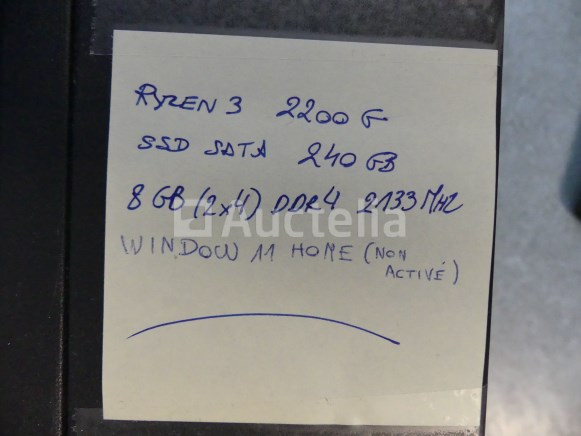 RYZEN 3 2200G
SSD SATA 240 GB
8 GB (2x4) DDR4 2133 MHZ
Auctelia
WINDOW 11 HOME (NON
ACTIVÉ)